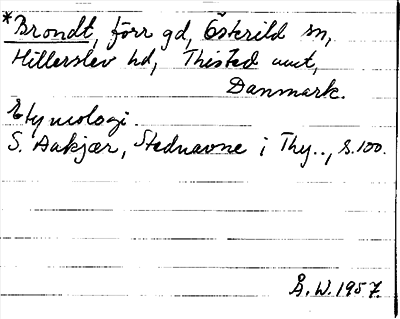 *Brondt, förr gd, Österild sn,
Hillerslev hd, Thisted amt,
Danmark.
Etymologi.
S. Aakjær, Stednavne i Thy.., s.100.
Å.W.1957.